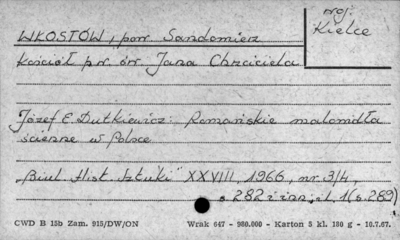 woj.
Kielce
WKOSTÓW, pow. Sandomierz
Kościół pw. św. Jana Chrzciciela
Józef E. Dutkiewicz: Romańskie malowidła
ścienne w Polsce
"Biul. Hist. Sztuki" XXVIII, 1966, nr. 3/4,
s. 282 i nn., il. 1 (s. 289)
CWD B 15b Zam. 915/DW/ON Wrak 647 - 980.000 - Karton 5 kl. 180 g - 10.7.67.